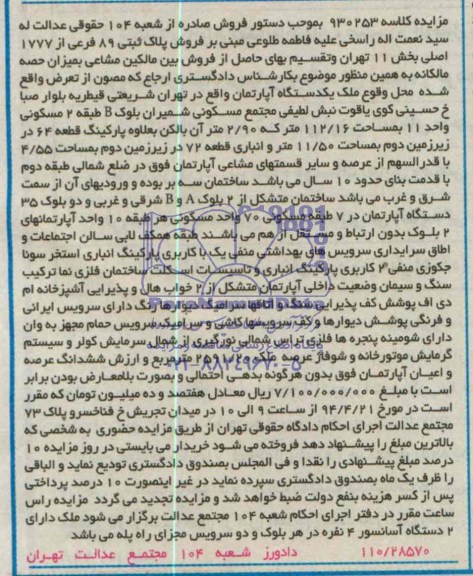 مزایده کلاسه ۹۳۰۲۵۳ بموجب دستور فروش صادره از شعبه ۱۰۴ حقوقی عدالت له
سید نعمت اله راسخی علیه فاطمه طلوعی مبنی بر فروش پلاک ثبتی ۸۹ فرعی از ۱۷۷۷
اصلی بخش ۱۱ تهران وتقسیم بهای حاصل از فروش بین مالکین مشاعی بمیزان حصه
مالکانه به همین منظور موضوع بکارشناس دادگستری ارجاع که مصون از تعرض واقع
شده محل وقوع ملک یکدستگاه آپارتمان واقع در تهران شریعتی قیطریه بلوار صبا
خ حسینی کوی یاقوت نبش لطیفی مجتمع مسکونی شمیران بلوک B طبقه ۲ مسکونی
واحد ۱۱ بمساحت ۱۱۲/۱۶ متر که ۲/۹۰ متر آن بالکن بعلاوه پارکینگ قطعه ۶۴ در
زیرزمین دوم بمساحت ۱۱/۵۰ متر و انباری قطعه ۷۲ در زیرزمین دوم بمساحت ۴/۵۵
با قدرالسهم از عرصه و سایر قسمتهای مشاعی آپارتمان فوق در ضلع شمالی طبقه دوم
با قدمت بنای حدود ۱۰ سال می باشد ساختمان سه بر بوده و ورودیهای آن از سمت
شرق و غرب می باشد ساختمان متشکل از ۲ بلوک A و B شرقی و غربی و دو بلوک ۳۵
دستگاه آپارتمان در ۷ طبقه مسکونی ۷۰ واحد مسکونی هر طبقه ۱۰ واحد آپارتمانهای
۲ بلوک بدون ارتباط و مستقل از هم می باشند طبقه همکف لابی سالن اجتماعات و
اطاق سرایداری سرویس های بهداشتی منفی یک با کاربری پارکینگ انباری استخر سونا
جکوزی منفی ۲ کاربری پارکینگ انباری و تاسیسات اسکلت ساختمان فلزی نما ترکیب
سنگ و سیمان وضعیت داخلی آپارتمان متشکل از ۲ خواب هال و پذیرایی آشپزخانه ام
دی اف پوشش کف پذیرایی سنگ و اتاقها سرامیک دیوارها رنگ دارای سرویس ایرانی
و فرنگی پوشش دیوارها و کف سرویسها کاشی و سرامیک سرویس حمام مجهز به وان
دارای شومینه پنجره ها فلزی تراس شمالی نورگیری از شمال سرمایش کولر و سیستم
گرمایش موتورخانه و شوفاژ عرصه ملک ۲۵۹۱/۲۰ مترمربع و ارزش ششدانگ عرصه
و اعیان آپارتمان فوق بدون هرگونه بدهی احتمالی و بصورت بلامعارض بودن برابر
است با مبلغ ۷/۱۰۰/۰۰۰/۰۰۰ ریال معادل هفتصد و ده میلیون تومان که مقرر
است در مورخ ۹۴/۴/۲۱ از ساعت ۹ الی ۱۰ در میدان تجریش خ فناخسرو پلاک ۷۳
مجتمع عدالت اجرای احکام دادگاه حقوقی تهران از طریق مزایده حضوری به شخصی که
بالاترین مبلغ را پیشنهاد دهد فروخته می شود خریدار می بایستی در روز مزایده ۱۰
درصد مبلغ پیشنهادی را نقدا و فی المجلس بصندوق دادگستری تودیع نماید و الباقی
را ظرف یک ماه بصندوق دادگستری سپرده نماید در غیر اینصورت ۱۰ درصد پرداختی
پس از کسر هزینه بنفع دولت ضبط خواهد شد و مزایده تجدید می گردد مزایده راس
ساعت مقرر در دفتر اجرای احکام شعبه ۱۰۴ مجتمع عدالت برگزار می شود ملک دارای
۲ دستگاه آسانسور ۴ نفره در هر بلوک و دو سرویس مجزای راه پله می باشد
۱۱۰/۲۸۵۷۰ دادورز شعبه ۱۰۴ مجتمع عدالت تهران